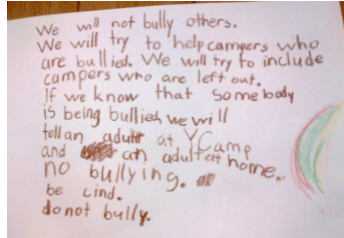 We will not bully others.
We will try to help campers who
are bullied. We will try to include
campers who are left out.
If we know that somebody
is being bullied, we will
tell an adult at Y Camp
and an adult at home.
no bullying.
be cind.
do not bully.